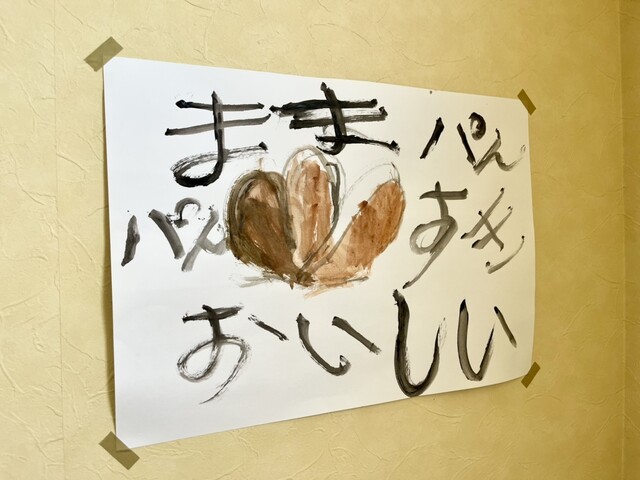 まま パん
パん すき
おいしい